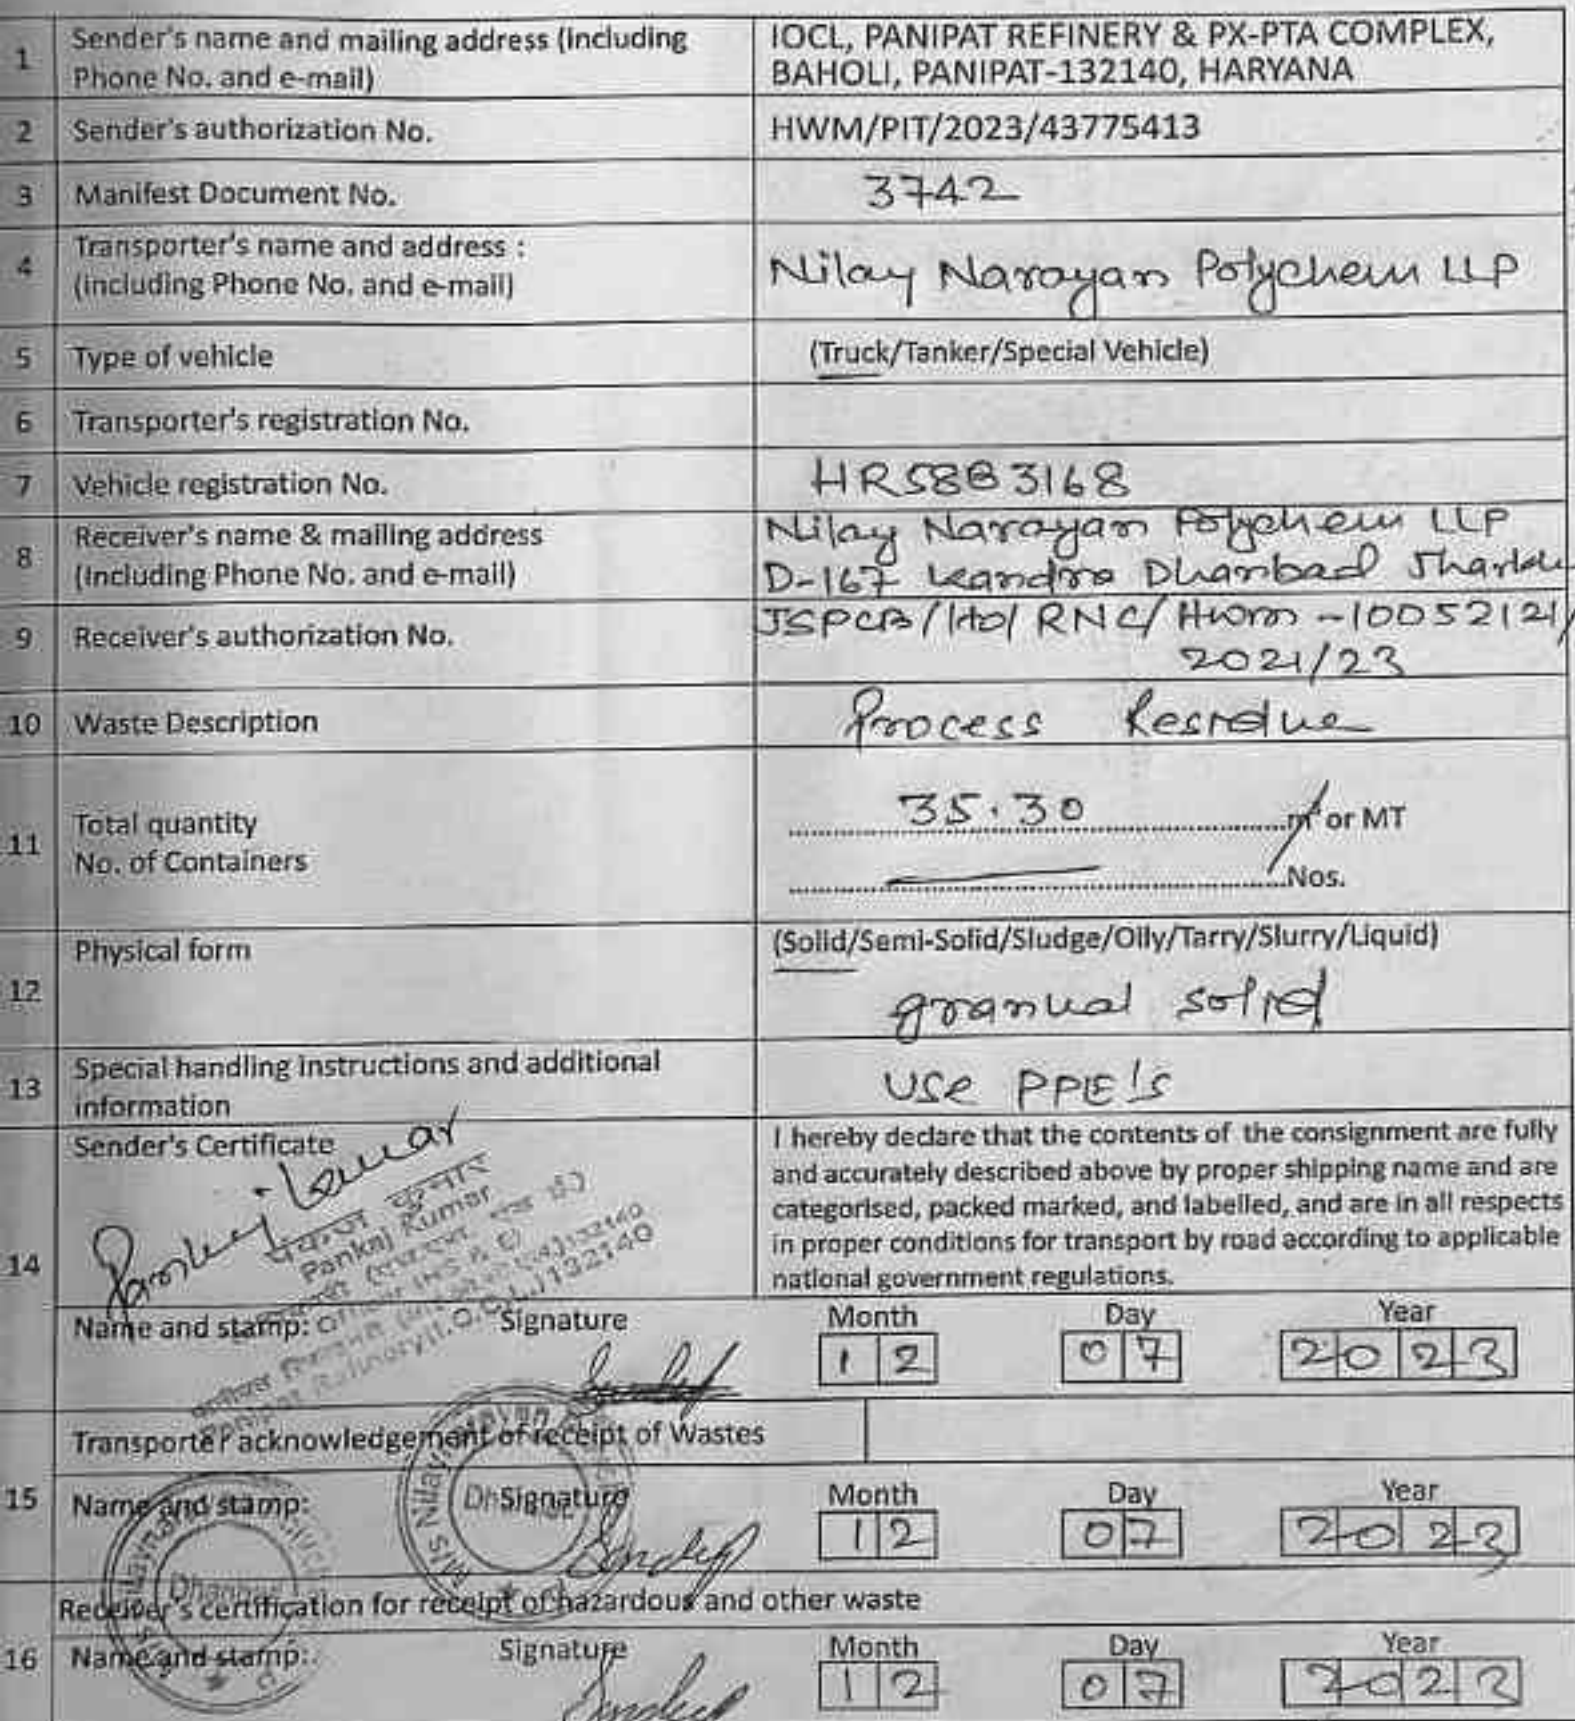 1 Sender's name and mailing address (Including Phone No. and e-mail) IOCL, PANIPAT REFINERY & PX-PTA COMPLEX, BAHOLI, PANIPAT-132140, HARYANA
2 Sender's authorization No. HWM/PIT/2023/43775413
3 Manifest Document No. 3742
4 Transporter's name and address : (including Phone No. and e-mail) Nilay Narayan Polychem LLP
5 Type of vehicle (Truck/Tanker/Special Vehicle)
6 Transporter's registration No.
7 Vehicle registration No. HR58B3168
8 Receiver's name & mailing address (Including Phone No. and e-mail) Nilay Narayan Polychem LLP D-167 Kandra Dhanbad
9 Receiver's authorization No. JSPCB/HO/RNC/HWM-10052121/2021/23
10 Waste Description Process Residue
11 Total quantity 35.30 m³ or MT
No. of Containers Nos.
12 Physical form (Solid/Semi-Solid/Sludge/Oily/Tarry/Slurry/Liquid)
granual solid
13 Special handling instructions and additional information Use PPE's
14 Sender's Certificate
Pankaj Kumar
पंकज कुमार
Pankaj Kumar
Officer (HS & E)
Panipat Refinery (I.O.C.L.) 132140
I hereby declare that the contents of the consignment are fully
and accurately described above by proper shipping name and are
categorised, packed marked, and labelled, and are in all respects
in proper conditions for transport by road according to applicable
national government regulations.
Name and stamp: Signature Month Day Year
12 07 2023
15 Transporter acknowledgement of receipt of Wastes
Name and stamp: Signature Month Day Year
Sandeep 12 07 2023
Dhanbad
Receiver's certification for receipt of hazardous and other waste
16 Name and stamp: Signature Month Day Year
Sandeep 12 07 2023